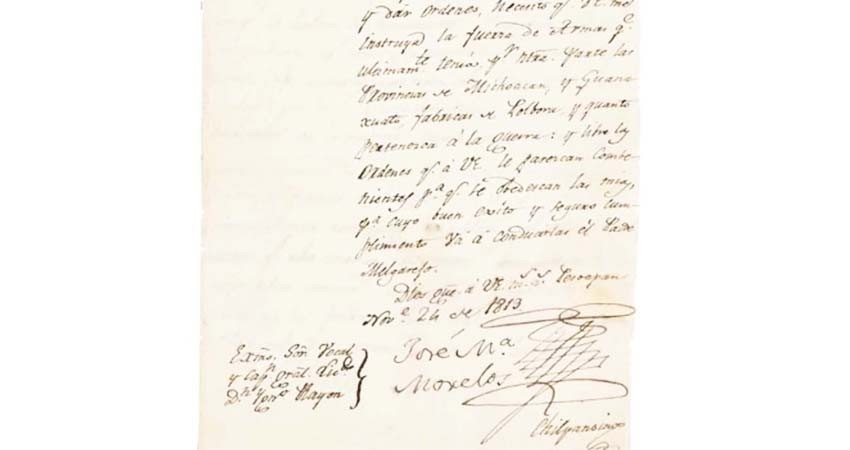 y dár Ordenes, necesito q.e V.E. me
instruya la fuerza de Armas q.e
ultimam.te tenia, y p.r ntra. parte las
Provincias de Michoacan, y Guana
xuato, fabricas de Polbora, y quanto
pertenesca á la Guerra: y libre las
Ordenes q.e á V.E. le parescan combe
nientes p.a q.e se obedescan las mias,
p.a cuyo buen exito y seguro cum
plimiento vá á conducirlas él Padre
Melgarejo.
Dios gue. á V.E. m.s a.s
Nov.e 24 de 1813.
José M.a
Morelos
Exmo. Sõr. Vocal
y Cap.n Gral. Licdo.
D.n Ygn.o Rayon
Chilpansingo